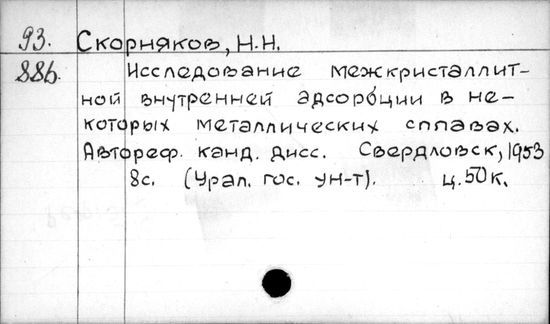 93. Скорняков, Н.Н.
886. Исследование межкристаллит-
ной внутренней адсорбции в не-
которых металлических сплавах.
Автореф. канд. дисс. Свердловск, 1953
8с. (Урал. гос. ун-т). ц. 50 к.